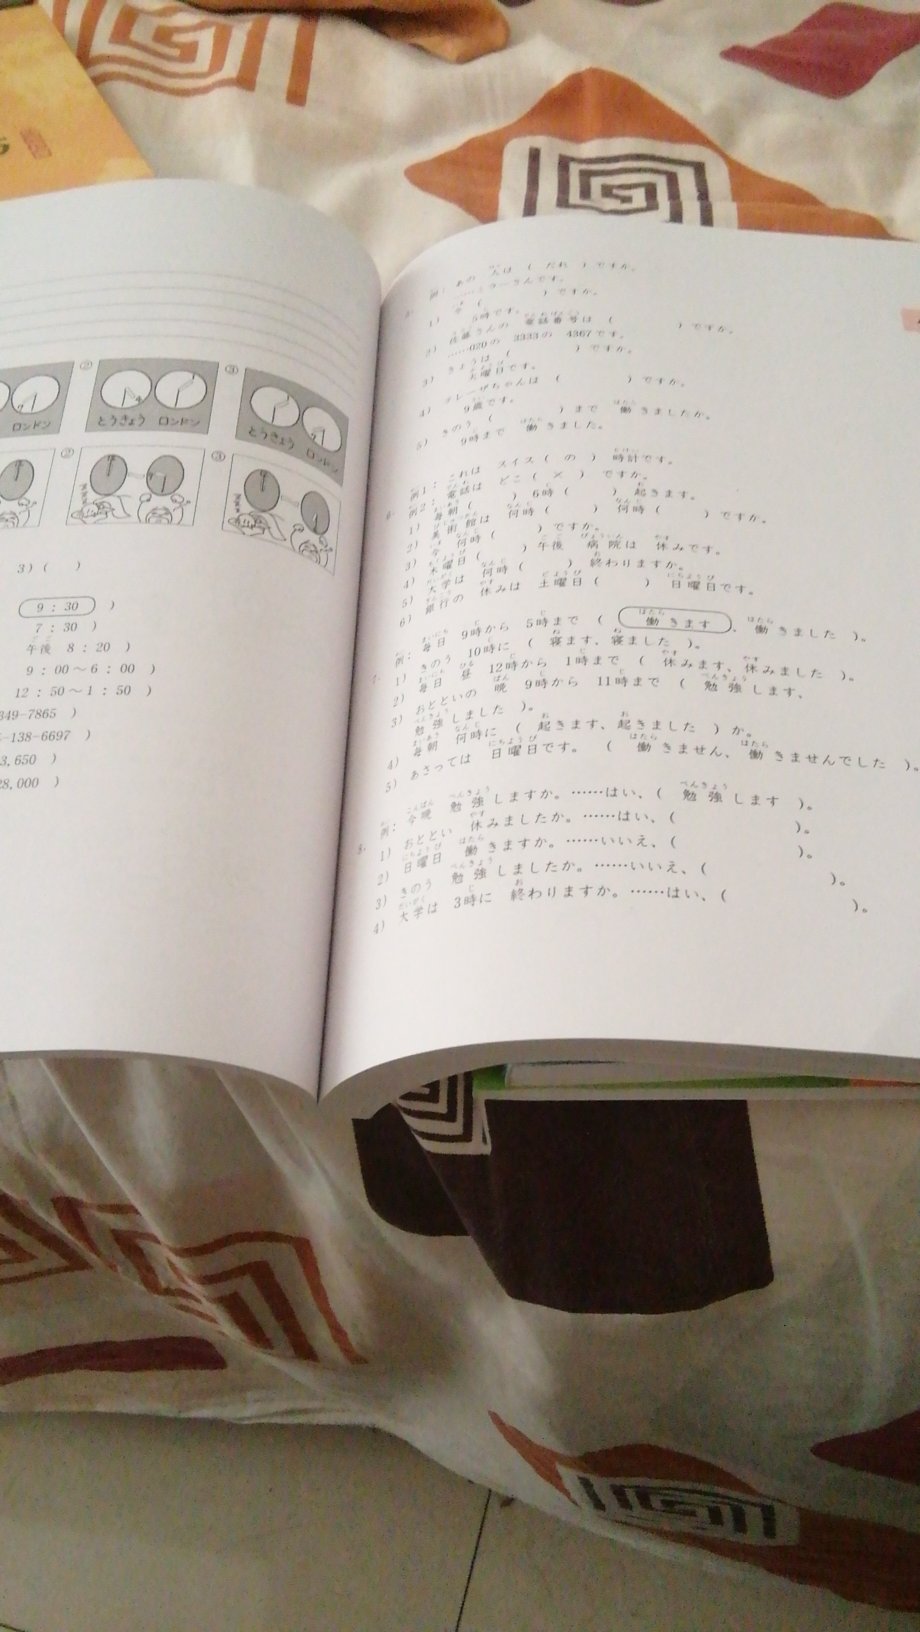 ロンドン
②
とうきょう ロンドン
③
とうきょう ロンドン
②
③
3) ( )
9:30 )
7:30 )
午後 8:20 )
9:00~6:00 )
12:50~1:50 )
349-7865 )
-138-6697 )
3,650 )
28,000 )
例: あの 人は ( だれ ) ですか。
……ミラーさんです。
1) 今 ( ) ですか。
5時です。
2) 佐藤さんの 電話番号は ( ) ですか。
……020の 3333の 4367です。
3) きょうは ( ) ですか。
火曜日です。
4) テレーザちゃんは ( ) ですか。
9歳です。
5) きのう ( ) まで 働きましたか。
9時まで 働きました。
6.
例1: これは スイス ( の ) 時計です。
例2: 電話は どこ ( × ) ですか。
1) 毎朝 ( ) 6時 ( ) 起きます。
2) 美術館は 何時 ( ) 何時 ( ) ですか。
3) 今 何時 ( ) ですか。
4) 木曜日 ( ) 午後 病院は 休みです。
5) 大学は 何時 ( ) 終わりますか。
6) 銀行の 休みは 土曜日 ( ) 日曜日です。
7.
例: 毎日 9時から 5時まで ( 働きます、働きました )。
1) きのう 10時に ( 寝ます、寝ました )。
2) 毎日 昼 12時から 1時まで ( 休みます、休みました )。
3) おとといの 晩 9時から 11時まで ( 勉強します、
勉強しました )。
4) 毎朝 何時に ( 起きます、起きました ) か。
5) あさっては 日曜日です。 ( 働きません、働きませんでした )。
8.
例: 今晩 勉強しますか。……はい、( 勉強します )。
1) おととい 休みましたか。……はい、( )。
2) 日曜日 働きますか。……いいえ、( )。
3) きのう 勉強しましたか。……いいえ、( )。
4) 大学は 3時に 終わりますか。……はい、( )。